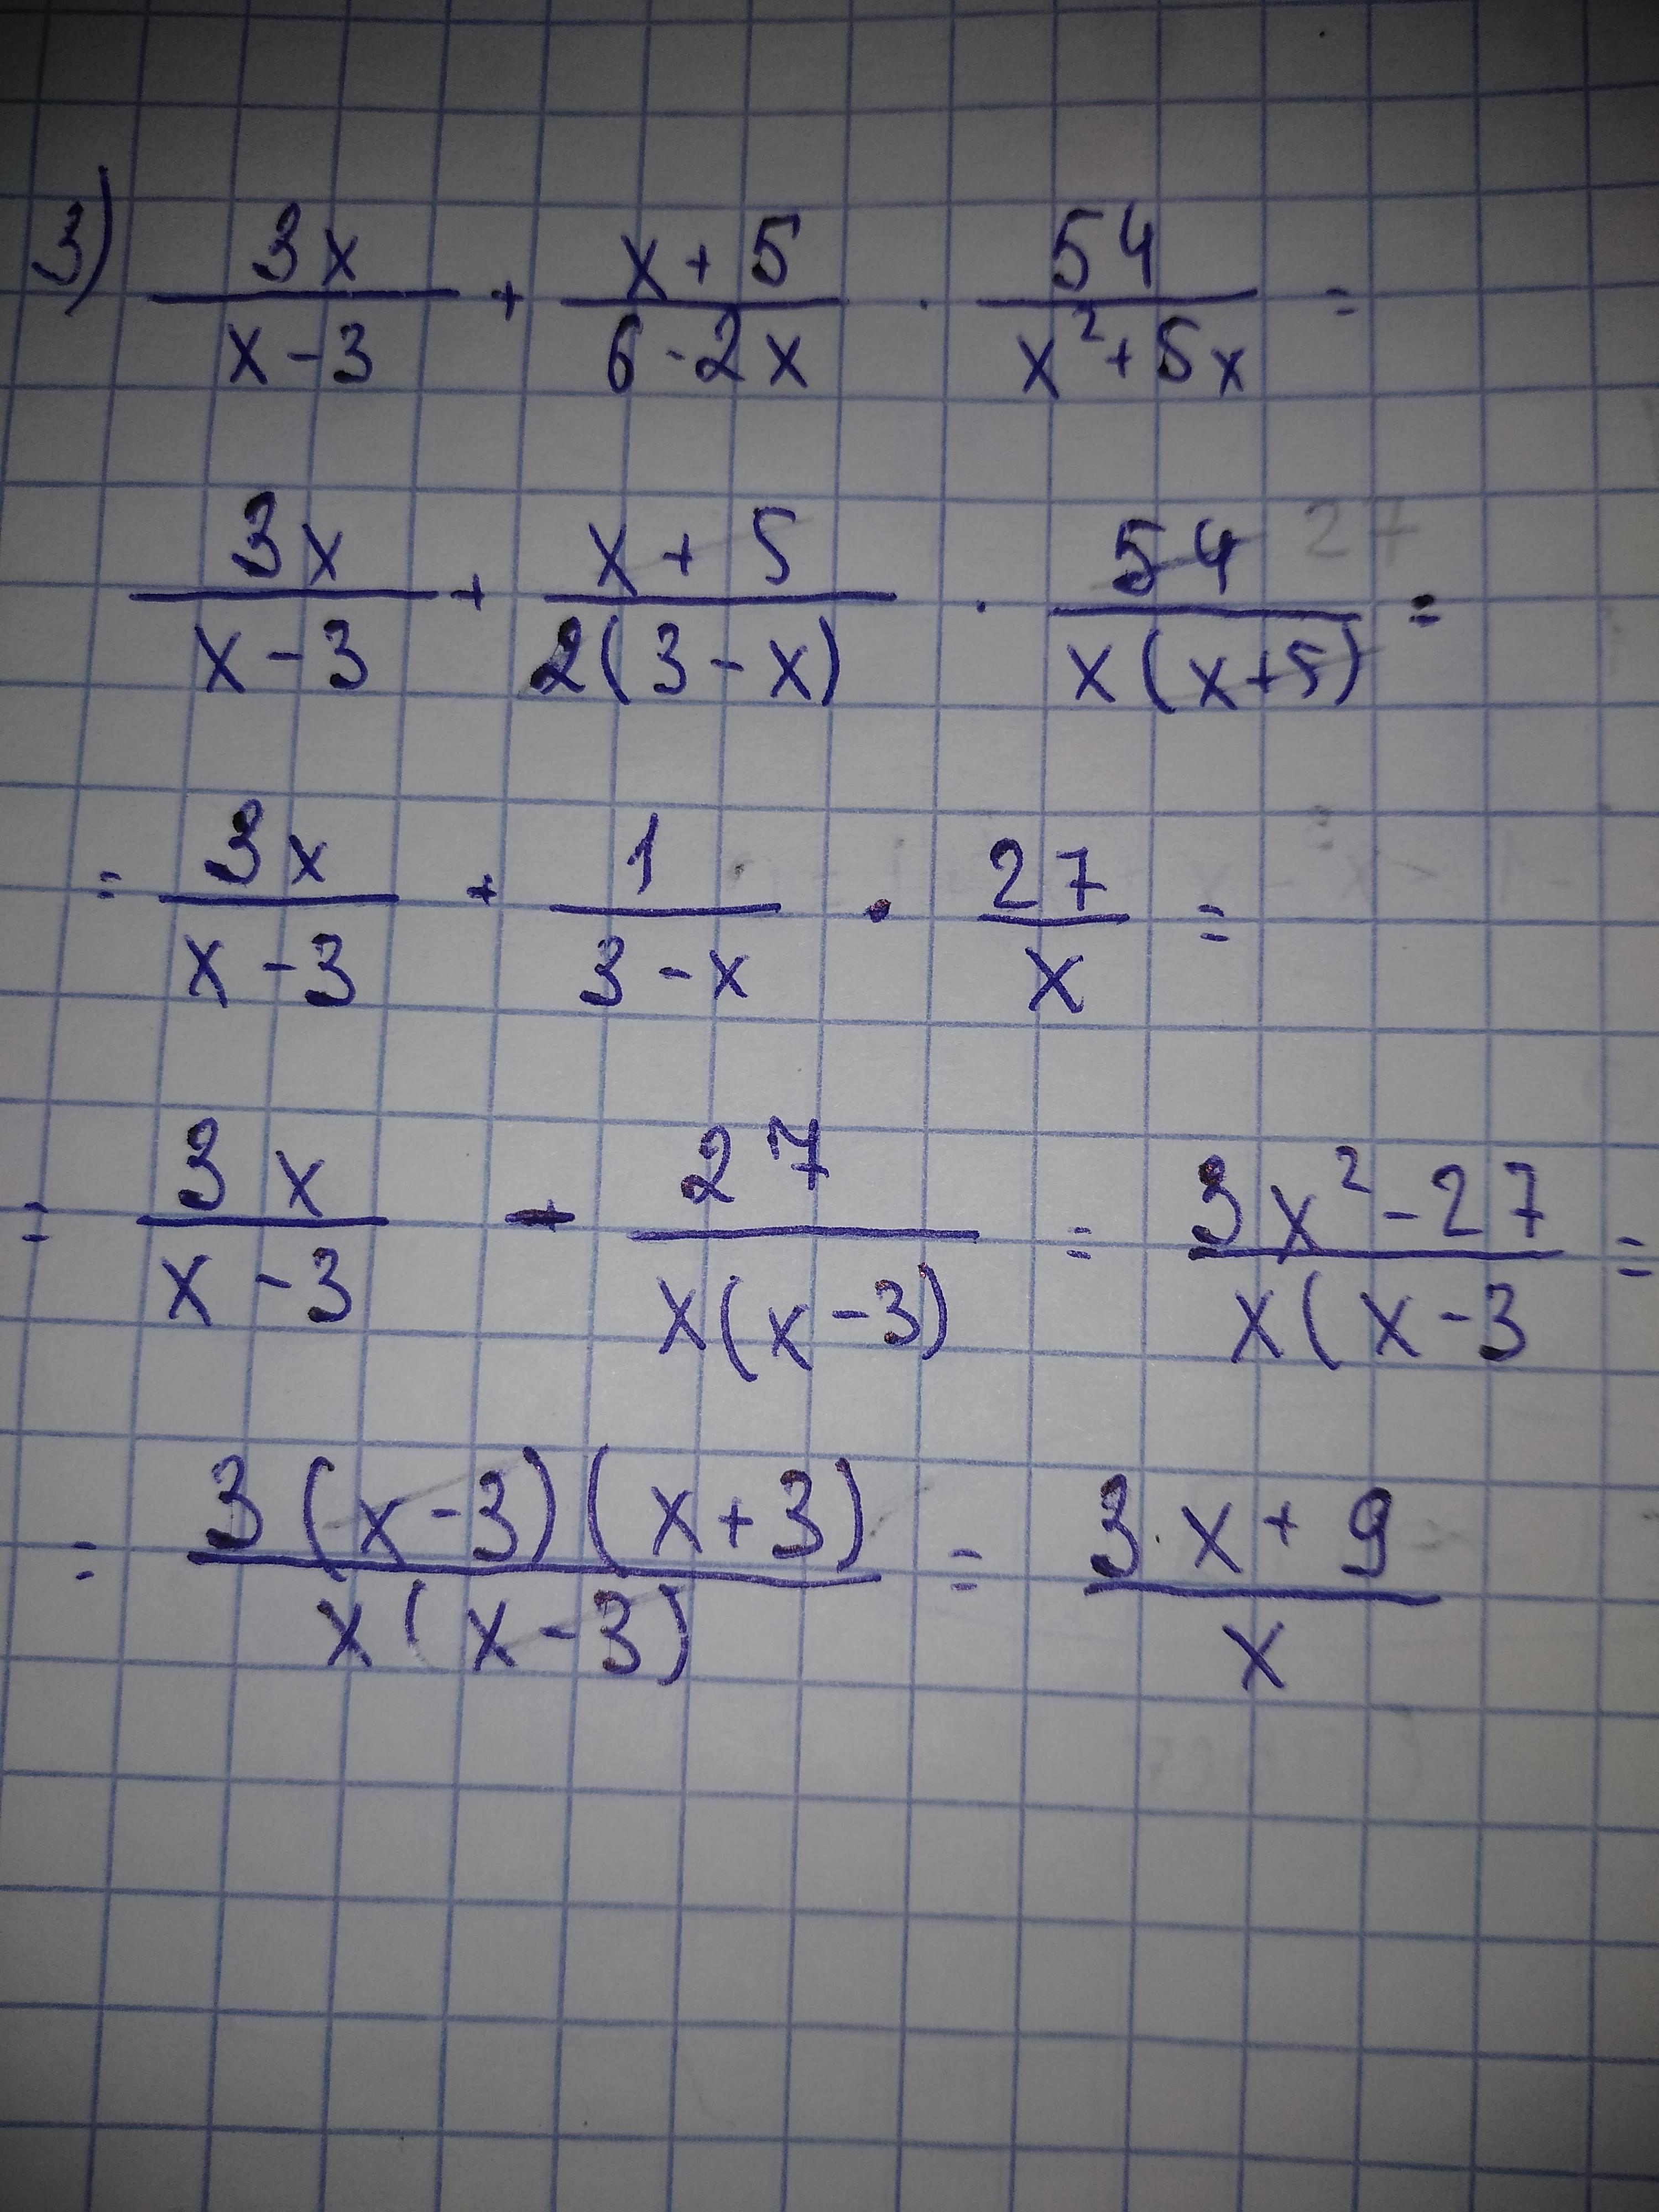 3) 3x/(x-3) + (x+5)/(6-2x) · 54/(x²+5x) =
3x/(x-3) + (x+5)/(2(3-x)) · 54/(x(x+5)) = 27
= 3x/(x-3) + 1/(3-x) · 27/x =
= 3x/(x-3) - 27/(x(x-3)) = (3x²-27)/(x(x-3 =
= 3(x-3)(x+3)/(x(x-3)) = (3·x+9)/x